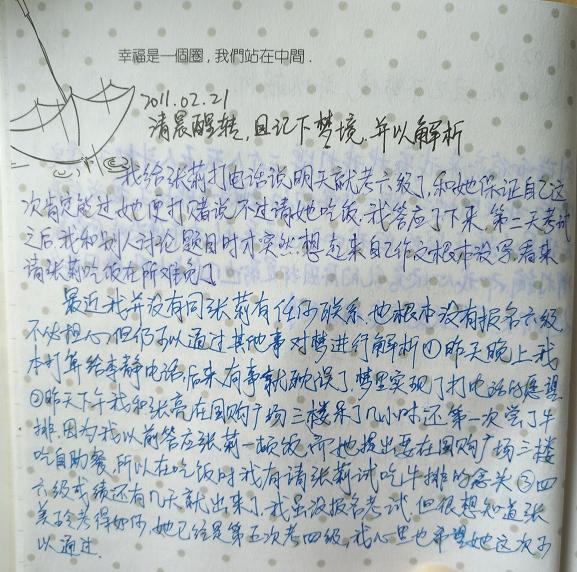 幸福是一個圈,我們站在中間.
2011.02.21
清晨醒转,因记下梦境,并以解析
我给张莉打电话说明天就考六级了,和她保证自己这
次肯定能过,她便打赌说不过请她吃饭.我答应了下来.第二天考试
之后,我和别人讨论题目时才突然想起来自己作文根本没写,看来
请张莉吃饭在所难免了
最近我并没有同张莉有任何联系,也根本没有报名六级
不必担心,但仍可以通过其他事对梦进行解析①昨天晚上我
本打算给李静电话,后来有事就耽误了,梦里实现了打电话的愿望
②昨天下午我和张亮在国购广场三楼呆了几小时,还第一次尝了牛
排,因为我以前答应张莉一顿饭,而她提出要在国购广场三楼
吃自助餐,所以在吃饭时我有请张莉试吃牛排的念头③四
六级成绩还有几天就出来了,我虽没报名考试,但很想知道张
美玲考得如何,她已经是第五次考四级,我心里也希望她这次可
以通过.